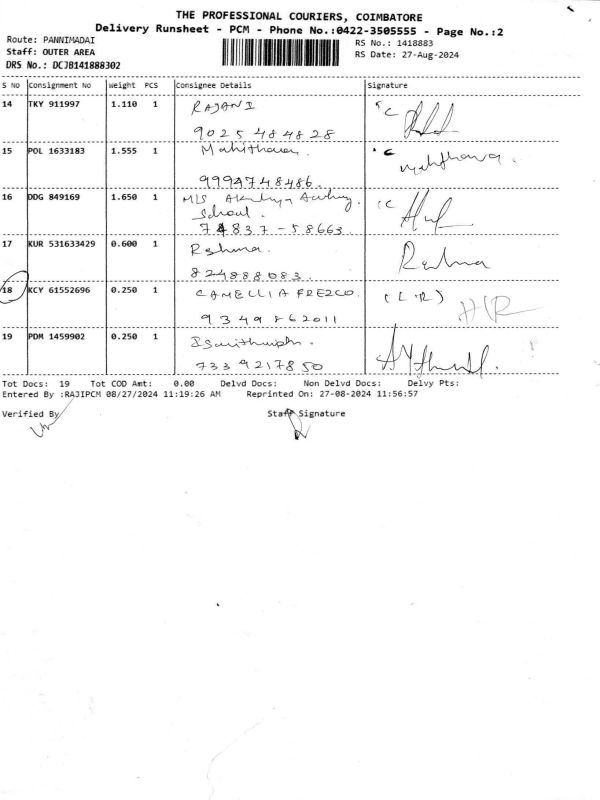 THE PROFESSIONAL COURIERS, COIMBATORE
Delivery Runsheet - PCM - Phone No.:0422-3505555 - Page No.:2
Route: PANNIMADAI
RS No.: 1418883
Staff: OUTER AREA
RS Date: 27-Aug-2024
DRS No.: DCJB141888302
S No Consignment No Weight PCS Consignee Details Signature
14 TKY 911997 1.110 1 RAJANI
9025484828
15 POL 1633183 1.555 1
9994748486.
16 DDG 849169 1.650 1 M/S
School.
74837-58663
17 KUR 531633429 0.600 1 Reshma.
824888083.
18 KCY 61552696 0.250 1 CAMELLIA FREZCO.
9349862011
19 PDM 1459902 0.250 1
7339217850
Tot Docs: 19 Tot COD Amt: 0.00 Delvd Docs: Non Delvd Docs: Delvy Pts:
Entered By :RAJIPCM 08/27/2024 11:19:26 AM Reprinted On: 27-08-2024 11:56:57
Verified By Staff Signature